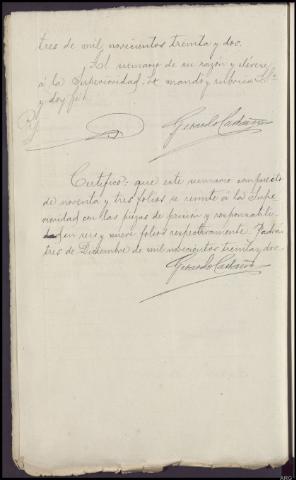 tres de mil novecientos treinta y dos.
El sumario de su razón y elévese
á la Superioridad. Lo mandó y rubrica S.Sª
y doy fé.
Gerardo Castaño
Certifico: que este sumario compuesto
de noventa y tres folios se remite á la Supe
rioridad con las piezas de prisión y responsabili-
dad en seis y nueve folios respectivamente. Padrón
tres de Diciembre de mil novecientos treinta y dos.
Gerardo Castaño
ARG